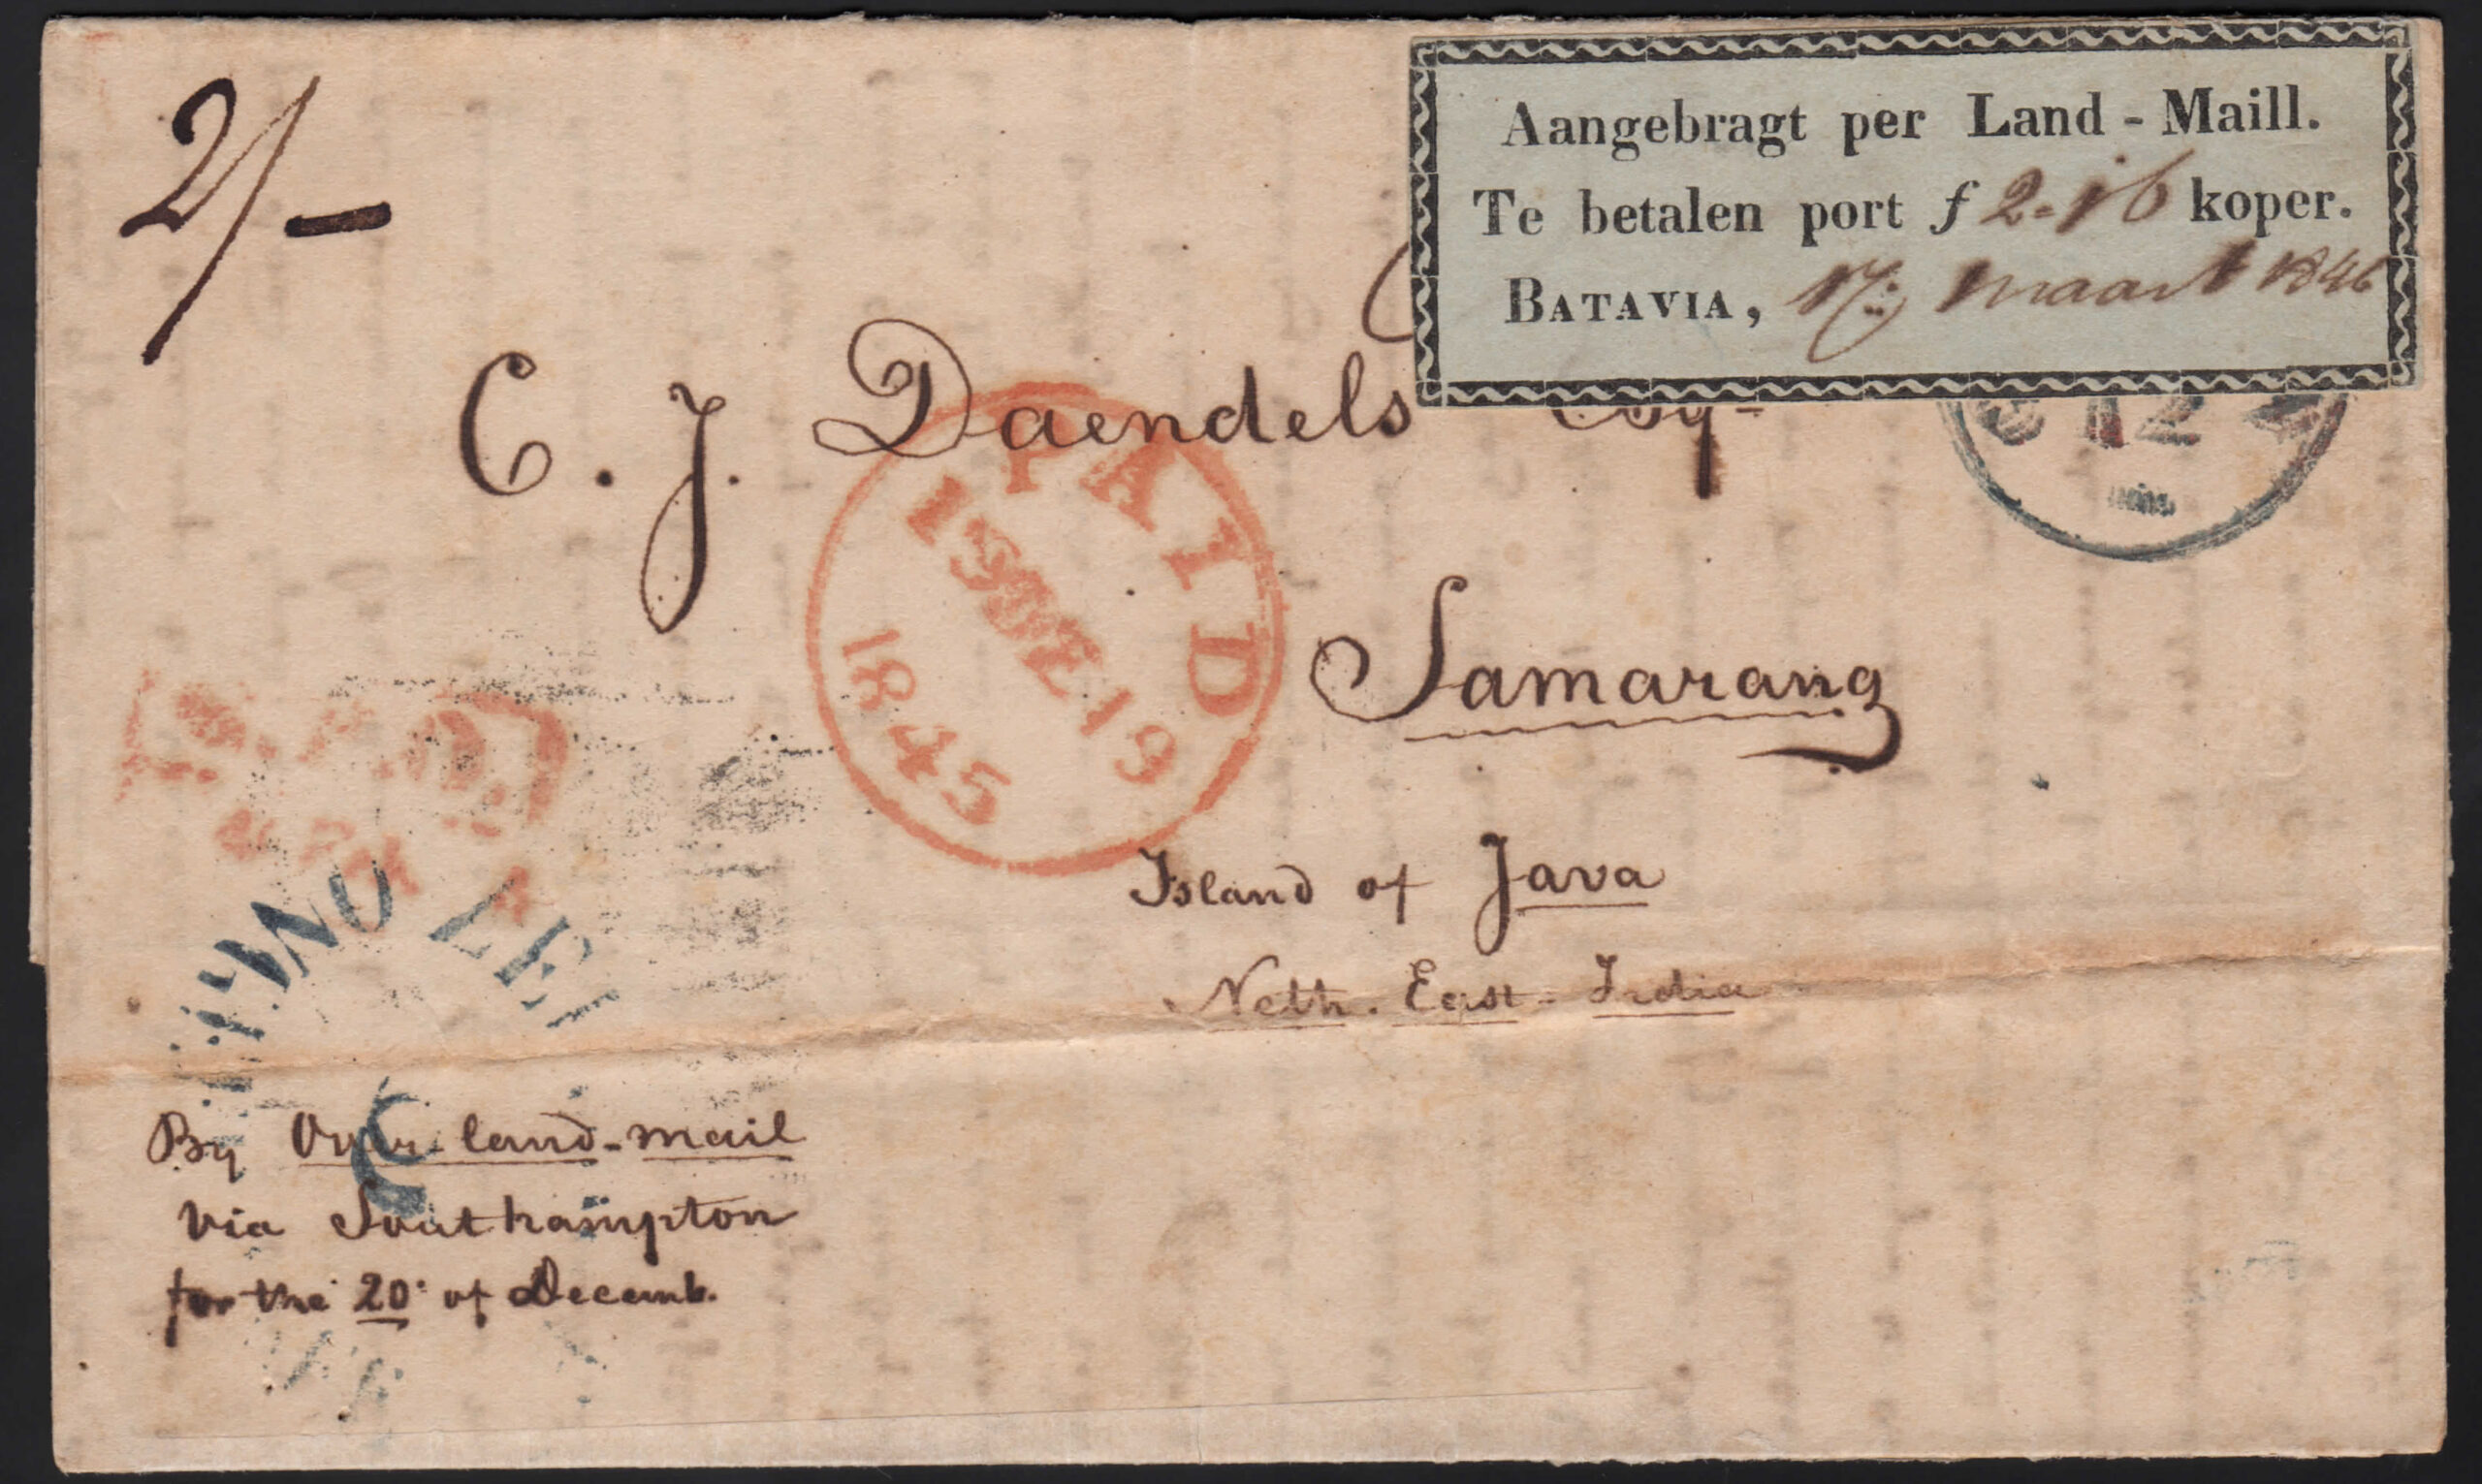 2/-
Aangebragt per Land - Maill.
Te betalen port ƒ 2-16 koper.
BATAVIA, 17: Maart 1846
C. J. Daendels Esqr
12
PAID
19 DE 19
1845
Samarang
Island of Java
Neth. East-India
By Over-land-mail
via Southampton
for the 20: of Decemb.